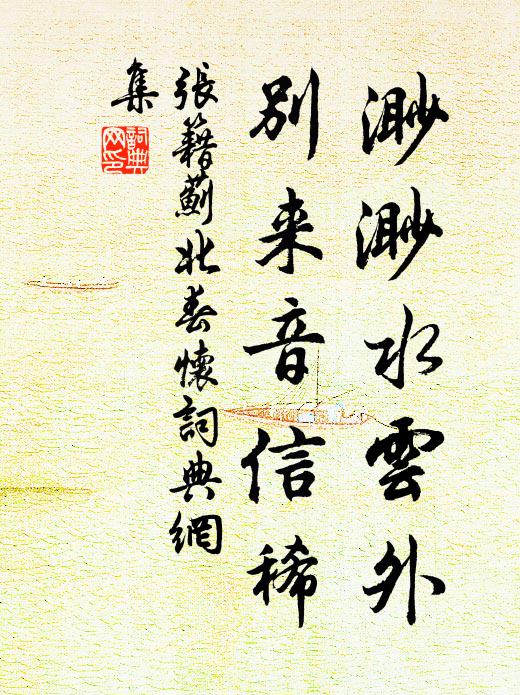 渺渺水雲外
別来音信稀
張籍薊北春懷詞典網
集
詞典
网印